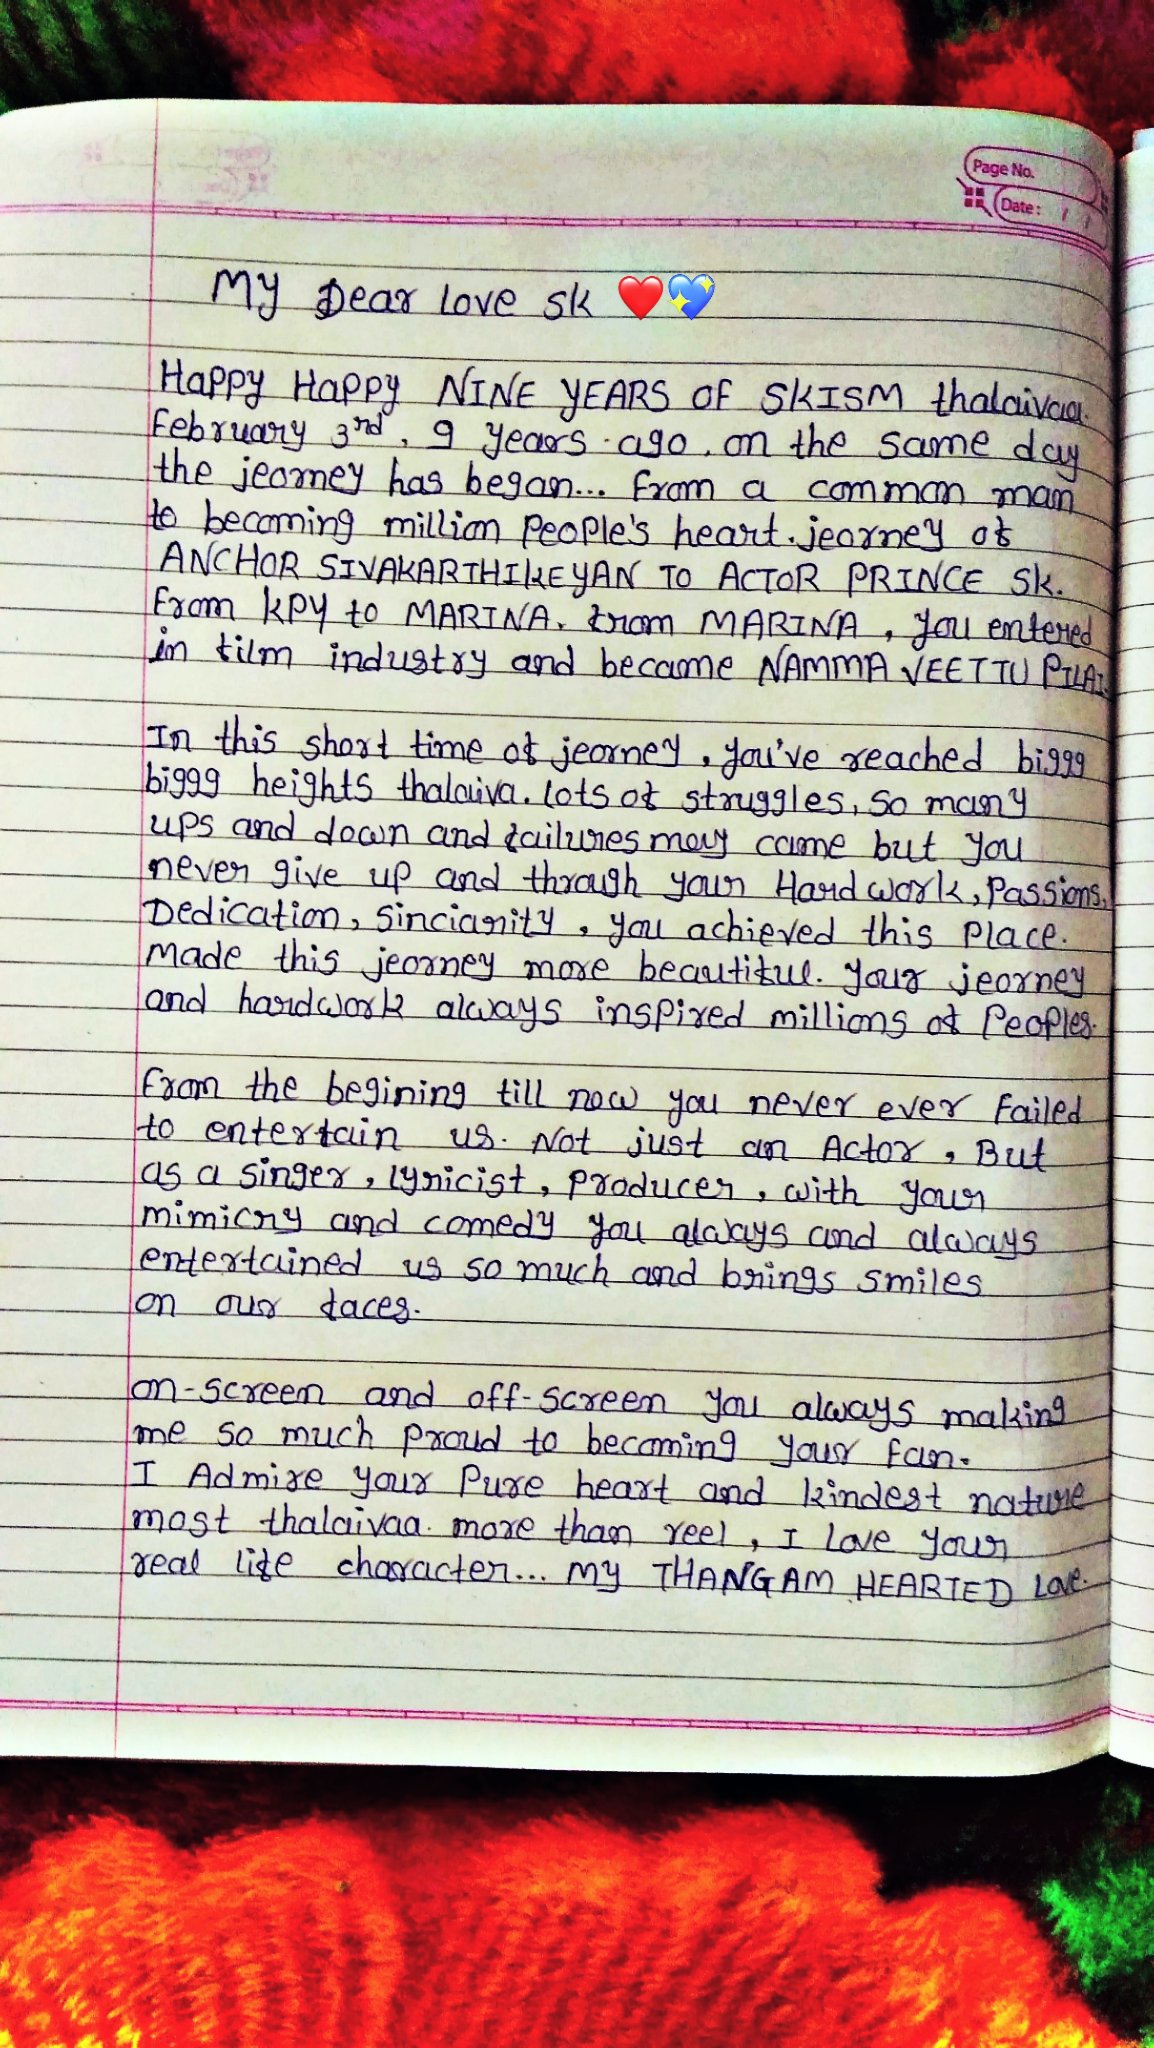 Page No.
Date:
My Dear Love SK ❤️💖
Happy Happy NINE YEARS OF SKISM thalaivaa.
February 3rd, 9 years ago, on the same day
the jeorney has began... From a common man
to becoming million People's heart. jeorney of
ANCHOR SIVAKARTHIKEYAN TO ACTOR PRINCE SK.
From KPY to MARINA. from MARINA, you entered
in film industry and become NAMMA VEETTU PILAI.
In this short time of jeorney, you've reached biggg
biggg heights thalaiva. lots of struggles, so many
ups and down and failures may came but you
never give up and through your Hardwork, Passions,
Dedication, Sincianity, you achieved this Place.
Made this jeorney more beautiful. Your jeorney
and hardwork always inspired millions of Peoples.
From the begining till now you never ever Failed
to entertain us. Not just an Actor, But
as a Singer, Lyricist, Producer, with your
mimicry and comedy you always and always
entertained us so much and brings smiles
on our faces.
on-screen and off-screen you always making
me so much Proud to becoming your Fan.
I Admire your Pure heart and kindest nature
most thalaivaa. more than reel, I love your
real life character... My THANGAM HEARTED Love.